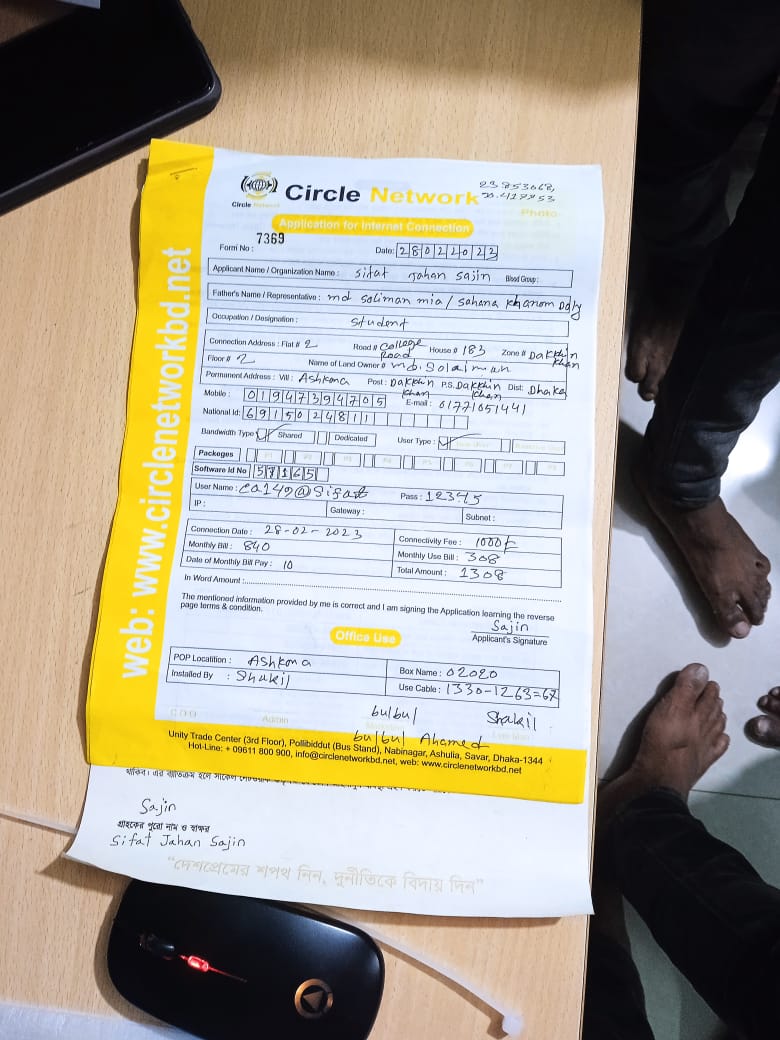 23.853068,
90.417753
Circle Network
Circle Network
Photo
Application for Internet Connection
Form No : 7369
Date: 28022023
Applicant Name / Organization Name : Sifat Jahan Sajin Blood Group :
Father's Name / Representative : md soliman mia / Sahana Khanom Daly
Occupation / Designation : Student
Connection Address : Flat # 2 Road # College Road House # 183 Zone # Dakkhin Khan
Floor # 2 Name of Land Owner # md. Solaiman
Permanent Address : Vill : Ashkona Post : Dakkhin Khan P.S. Dakkhin Khan Dist: Dhaka
Mobile : 01947394705 E-mail : 01771051441
National Id: 6915024811
Bandwidth Type Shared Dedicated User Type :
Packeges P1 P2 P3 P4 P5 P6 P7 P8
Software Id No 57165
User Name : ca149@Sifat Pass : 12345
IP : Gateway : Subnet :
Connection Date : 28-02-2023 Connectivity Fee : 1000
Monthly Bill : 840 Monthly Use Bill : 308
Date of Monthly Bill Pay : 10 Total Amount : 1308
In Word Amount :
The mentioned information provided by me is correct and I am signing the Application learning the reverse
page terms & condition.
Sajin
Applicant's Signature
Office Use
POP Localition : Ashkona Box Name : 02020
Installed By : Shakil Use Cable : 1330-1263=67
bulbul Shakil
Admin
bulbul Ahamed
Unity Trade Center (3rd Floor), Pollibiddut (Bus Stand), Nabinagar, Ashulia, Savar, Dhaka-1344
Hot-Line: + 09611 800 900, info@circlenetworkbd.net, web: www.circlenetworkbd.net
web: www.circlenetworkbd.net
Sajin
গ্রাহকের পুরো নাম ও স্বাক্ষর
Sifat Jahan Sajin
"দেশপ্রেমের শপথ নিন, দুর্নীতিকে বিদায় দিন"